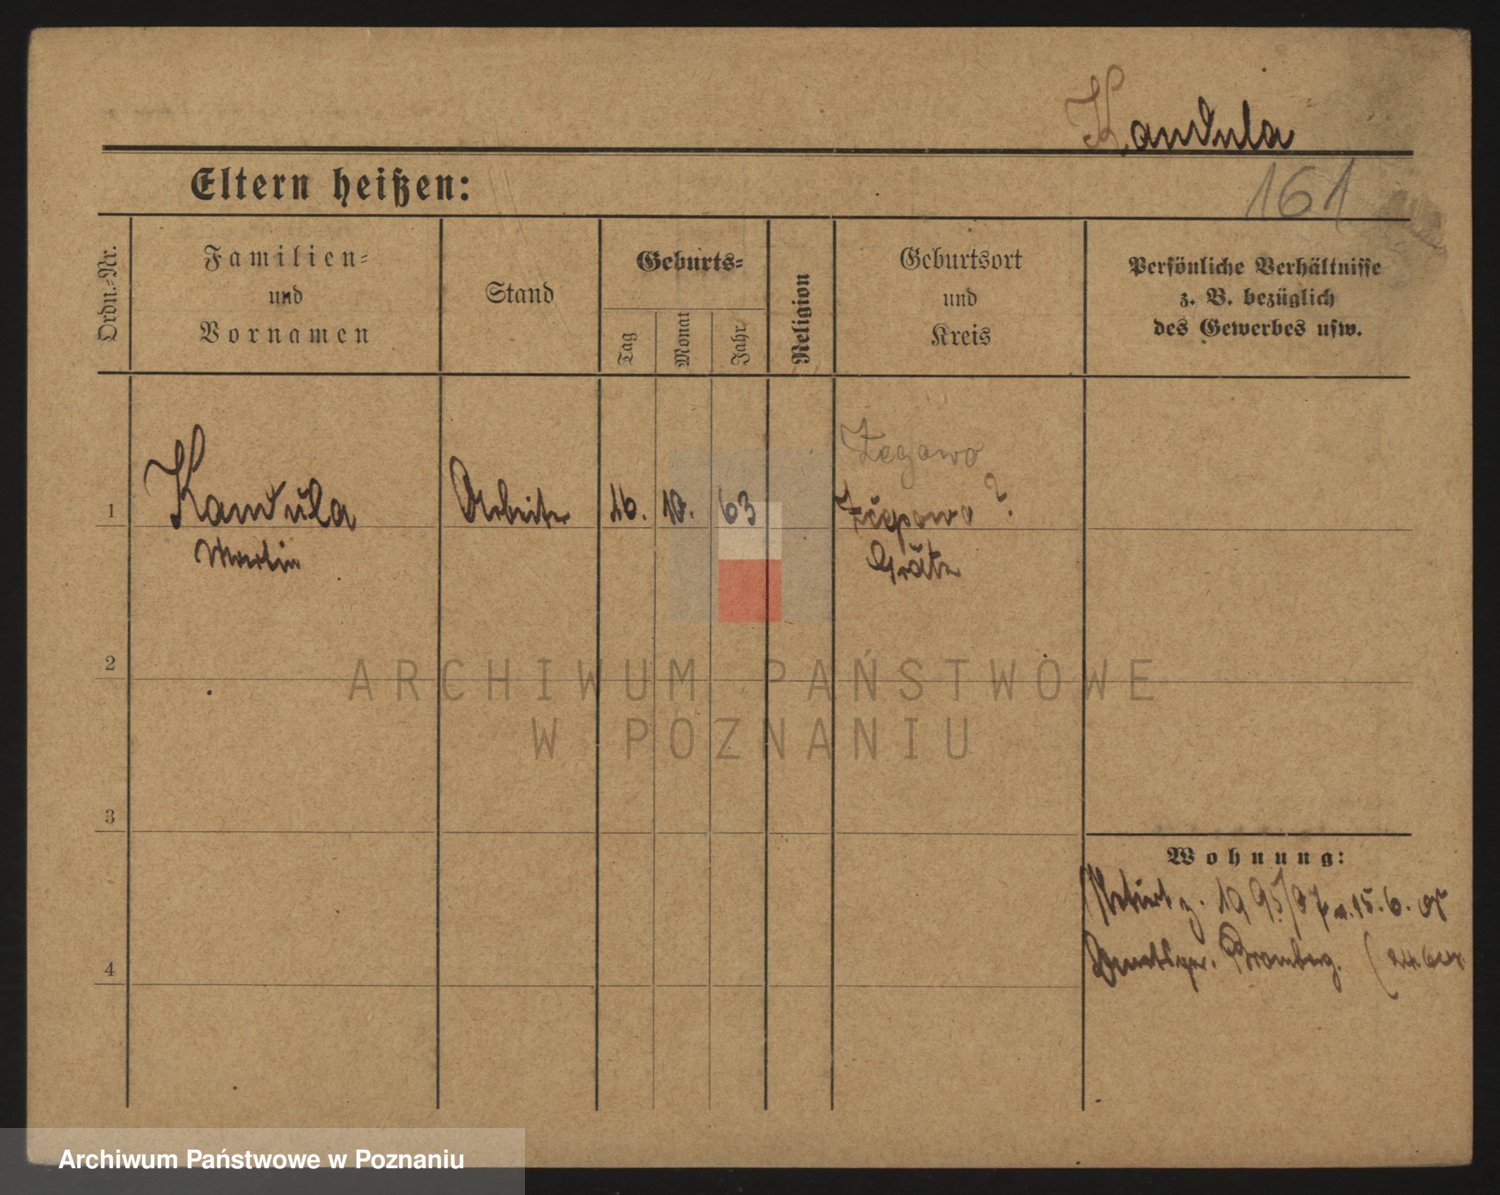 Kandula
Eltern heißen:
161
Ordn.-Nr.
Familien-
und
Vornamen
Stand
Geburts-
Tag
Monat
Jahr
Religion
Geburtsort
und
Kreis
Persönliche Verhältnisse
z. B. bezüglich
des Gewerbes usw.
Zegowo
1
Kandula
Arbeiter
16. 10. 63
?
Martin
Grätz
2
ARCHIWUM PAŃSTWOWE
W POZNANIU
3
Wohnung:
15. 6. 07
4
Bromberg.
Archiwum Państwowe w Poznaniu